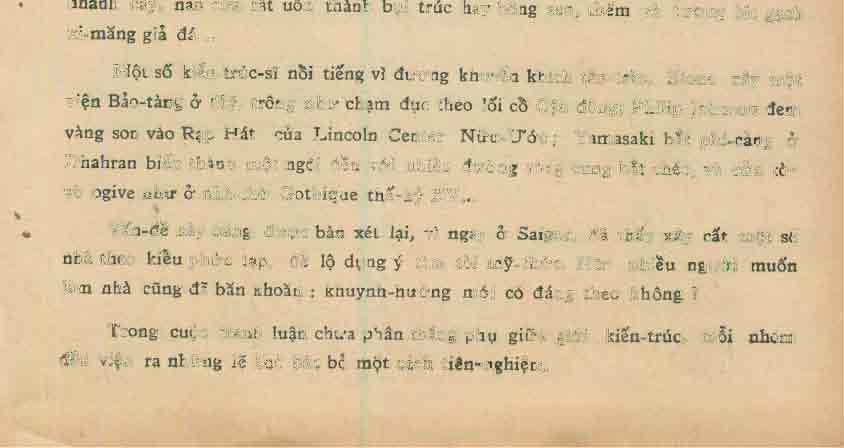 thành bụi trúc hay bông sen, thềm và tường lót gạch
xi-măng giả đá...
Một số kiến trúc-sĩ nổi tiếng vì đương khuyên khích xây một
viện Bảo-tàng ở trông như chạm đục theo lối cổ đem
vàng son vào Rạp Hát của Lincoln Center Nữu-Ước; Yamasaki bắt phi-cảng ở
Dhahran biến thành một ngôi đền với nhiều đường vòng cung bắt chéo, và cửa tò-
vò ogive như ở nhà-thờ Gothique thế-kỷ XV...
Vấn-đề này cũng được bàn xét lại, vì ngay ở Saigon, đã thấy xây cất một số
nhà theo kiểu phức tạp, để lộ dụng ý tìm tòi mỹ-thức. nhiều người muốn
làm nhà cũng đã băn khoăn : khuynh-hướng mới có đáng theo không ?
Trong cuộc tranh luận chưa phân thắng phụ giữa giới kiến-trúc, mỗi nhóm
đều viện ra những lẽ bác bỏ một cách tiên-nghiệm.